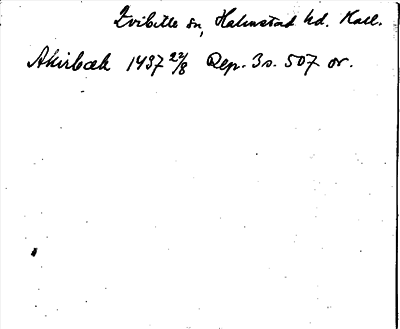 Kvibille sn, Halmstad hd. Hall.
Akirbæk 1437 22/8 Rep. 3 s. 507 or.